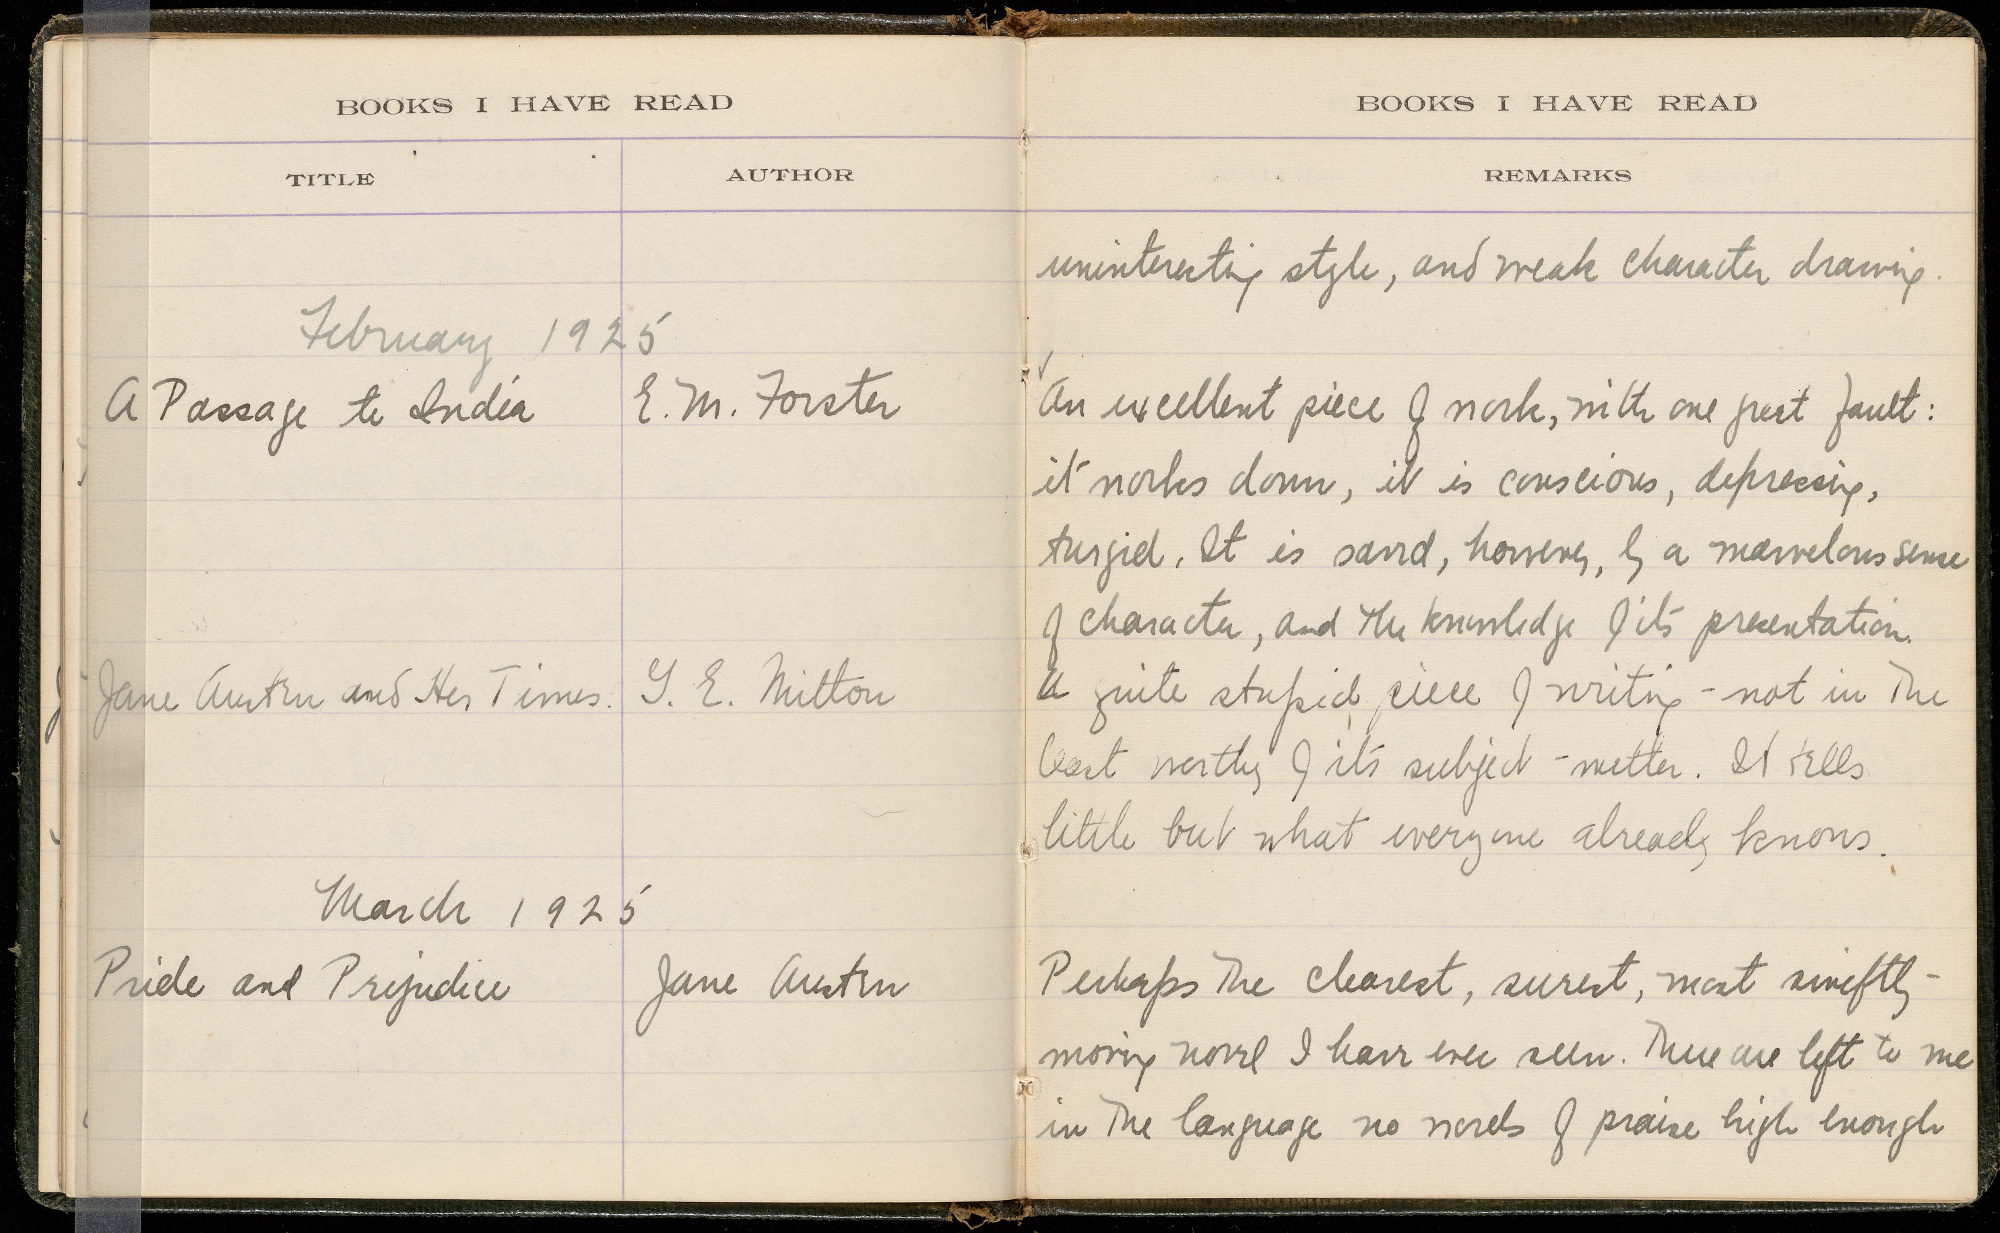 BOOKS I HAVE READ
TITLE AUTHOR
February 1925
A Passage to India E. M. Forster
Jane Austen and Her Times. G. E. Mitton
March 1925
Pride and Prejudice Jane Austen
BOOKS I HAVE READ
REMARKS
uninteresting style, and weak character drawing.
An excellent piece of work, with one great fault:
it works down, it is conscious, depressing,
turgid. It is saved, however, by a marvelous sense
of character, and the knowledge of its presentation.
A quite stupid piece of writing - not in the
least worthy of its subject-matter. It tells
little but what everyone already knows.
Perhaps the clearest, surest, most swiftly-
moving novel I have ever seen. There are left to me
in the language no words of praise high enough